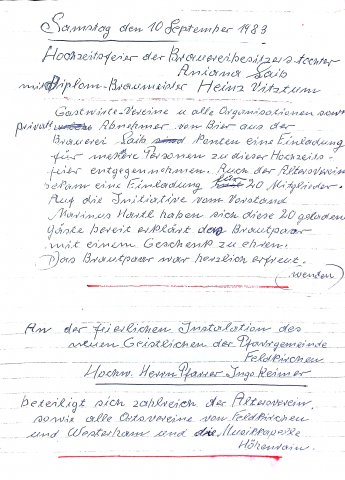 Samstag den 10 September 1983
Hochzeitsfeier der Brauereibesitzerstochter
Ariana Laib
mit Diplom-Braumeister Heinz Vitztum
Gastwirte-Vereine u alle Organisationen sowie
private Abnehmer von Bier aus der
Brauerei Laib konten eine Einladung
für mehrere Personen zu dieser Hochzeits-
feier entgegennehmen. Auch der Altersverein
bekam eine Einladung für 20 Mitglieder.
Auf die Initiative vom Vorstand
Marinus Hartl haben sich diese 20 geladen
Gäste bereit erklärt das Brautpaar
mit einem Geschenk zu ehren.
Das Brautpaar war herzlich erfreut.
(wenden)
An der feierlichen Instalation des
neuen Geistlichen der Pfarrgemeinde
Feldkirchen
Hochw. Herrn Pfarrer Ingo Reimer
beteiligt sich zahlreich der Altersverein,
sowie alle Ortsvereine von Feldkirchen
und Westerham und die Musikkapelle
Höhenrain.